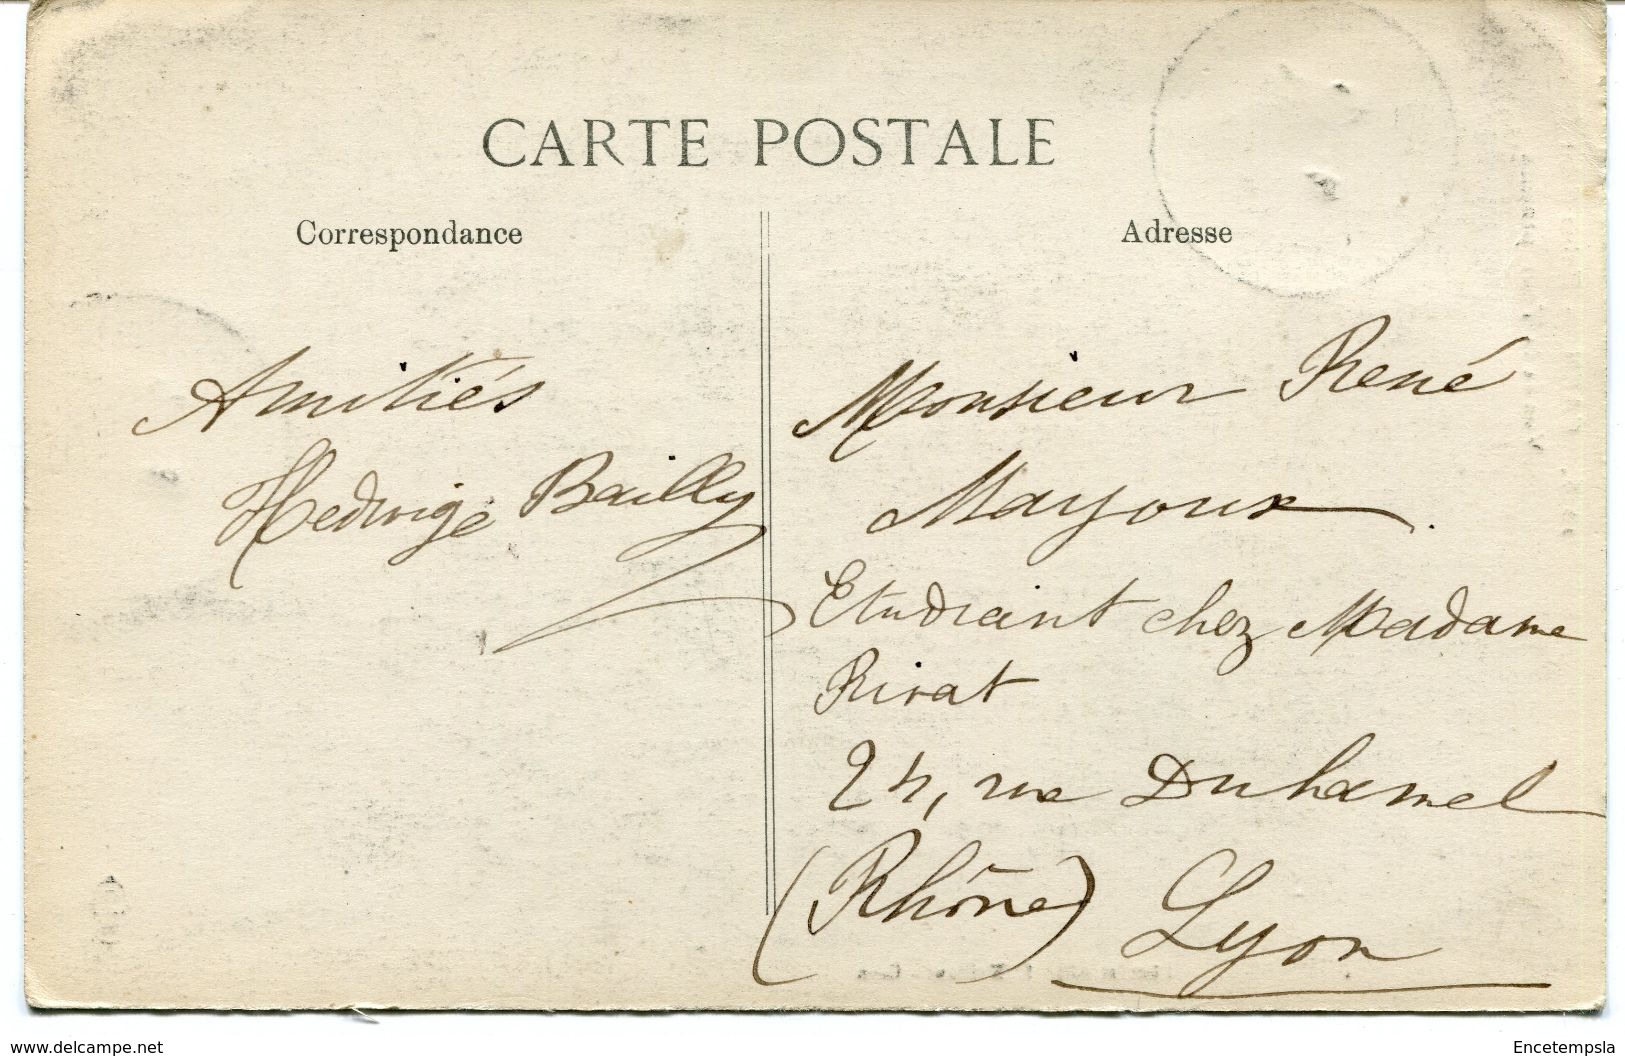 CARTE POSTALE
Correspondance
Amitiés
Hedwige Bailly
Adresse
Monsieur René
Mayoux.
Etudiant chez Madame
Rivat
24, rue Duhamel
(Rhône) Lyon
www.delcampe.net
Encetempsla